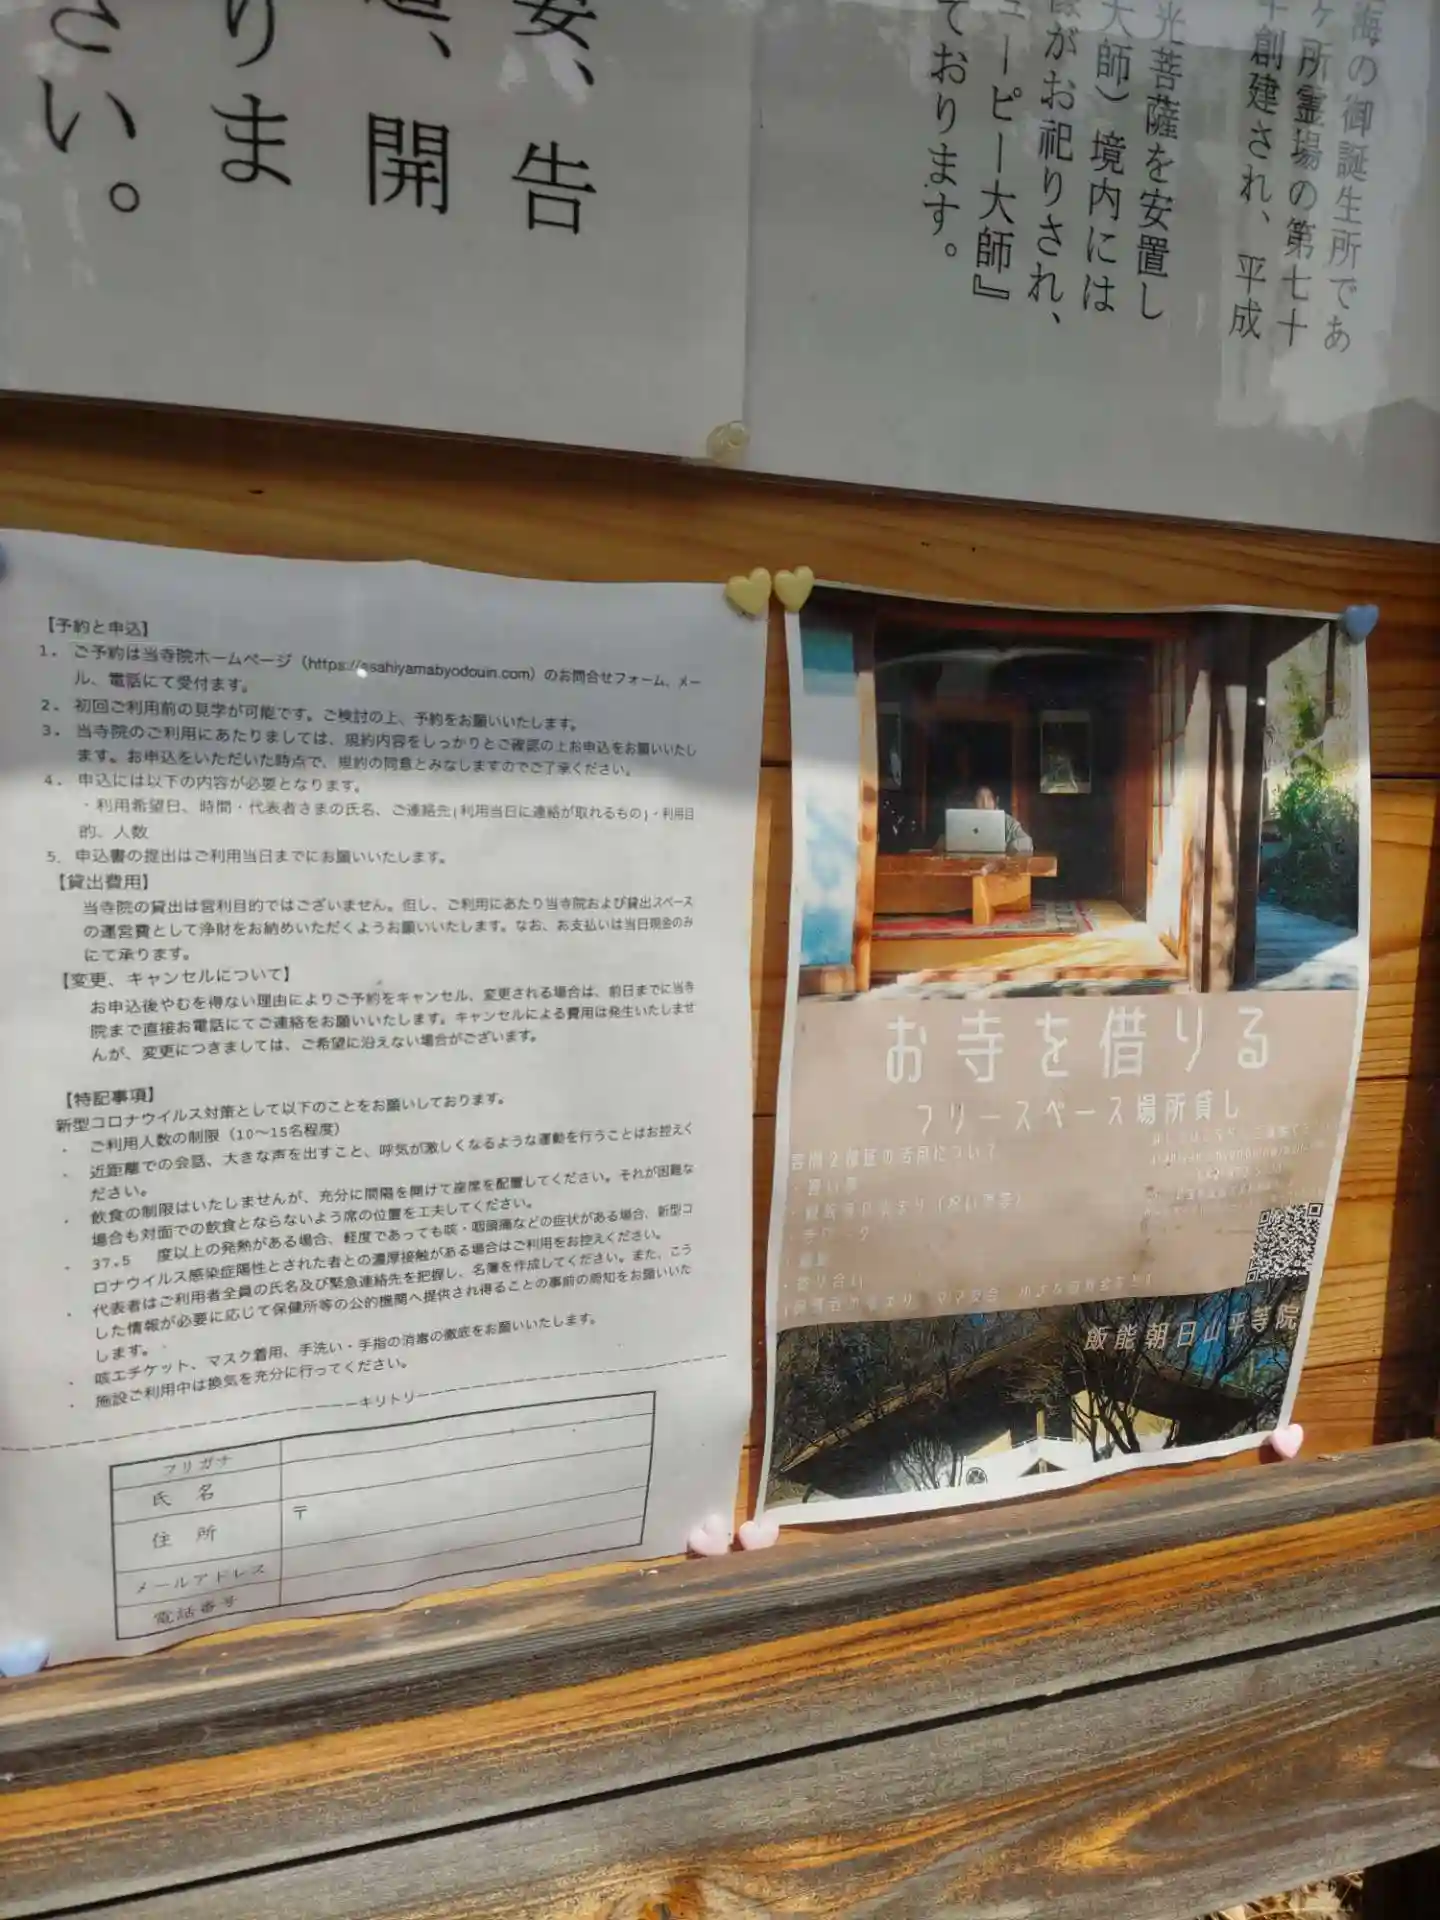 海の御誕生所であ
ヶ所霊場の第七十
年創建され、平成
光菩薩を安置し
大師）境内には
がお祀りされ、
ューピー大師』
ております。
安、告
、開
りま
さい。
【予約と申込】
1. ご予約は当寺院ホームページ（https://asahiyamabyodouin.com）のお問合せフォーム、メー
ル、電話にて受付ます。
2. 初回ご利用前の見学が可能です。ご検討の上、予約をお願いいたします。
3. 当寺院のご利用にあたりましては、規約内容をしっかりとご確認の上お申込をお願いいたし
ます。お申込をいただいた時点で、規約の同意とみなしますのでご了承ください。
4. 申込には以下の内容が必要となります。
・利用希望日、時間・代表者さまの氏名、ご連絡先(利用当日に連絡が取れるもの)・利用目
的、人数
5. 申込書の提出はご利用当日までにお願いいたします。
【貸出費用】
当寺院の貸出は営利目的ではございません。但し、ご利用にあたり当寺院および貸出スペース
の運営費として浄財をお納めいただくようお願いいたします。なお、お支払いは当日現金のみ
にて承ります。
【変更、キャンセルについて】
お申込後やむを得ない理由によりご予約をキャンセル、変更される場合は、前日までに当寺
院まで直接お電話にてご連絡をお願いいたします。キャンセルによる費用は発生いたしませ
んが、変更につきましては、ご希望に沿えない場合がございます。
【特記事項】
新型コロナウイルス対策として以下のことをお願いしております。
・ ご利用人数の制限（10～15名程度）
・ 近距離での会話、大きな声を出すこと、呼気が激しくなるような運動を行うことはお控えく
ださい。
・ 飲食の制限はいたしませんが、充分に間隔を開けて座席を配置してください。それが困難な
場合も対面での飲食とならないよう席の位置を工夫してください。
・ 37.5 度以上の発熱がある場合、軽度であっても咳・咽頭痛などの症状がある場合、新型コ
ロナウイルス感染症陽性とされた者との濃厚接触がある場合はご利用をお控えください。
・ 代表者はご利用者全員の氏名及び緊急連絡先を把握し、名簿を作成してください。また、こう
した情報が必要に応じて保健所等の公的機関へ提供され得ることの事前の周知をお願いいた
します。
・ 咳エチケット、マスク着用、手洗い・手指の消毒の徹底をお願いいたします。
・ 施設ご利用中は換気を充分に行ってください。
キリトリ
フリガナ
氏 名
住 所 〒
メールアドレス
電話番号
お寺を借りる
フリースペース場所貸し
の活用について
・習い事
・テワーク
・寄り合い
飯能朝日山平等院